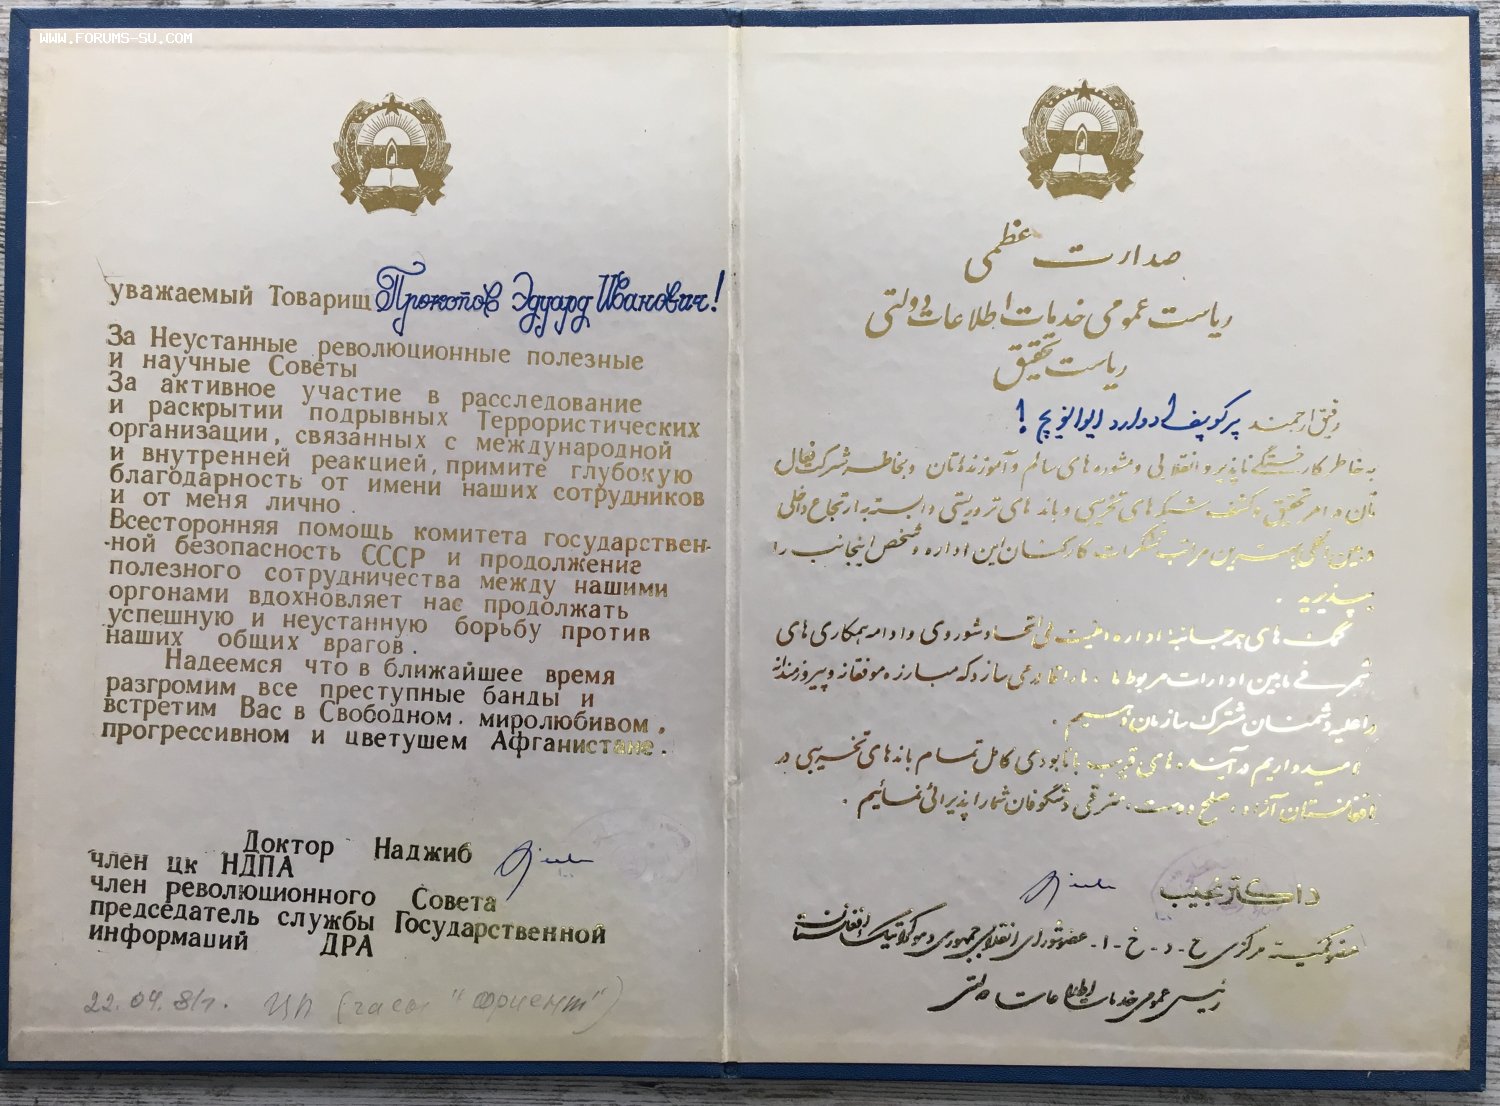 WWW.FORUMS-SU.COM
уважаемый Товарищ Прокопов Эдуард Иванович!
За Неустанные революционные полезные
и научные Советы
За активное участие в расследование
и раскрытии подрывных Террористических
организации, связанных с международной
и внутренней реакцией, примите глубокую
благодарность от имени наших сотрудников
и от меня лично.
Всесторонняя помощь комитета государствен-
-ной безопасность СССР и продолжение
полезного сотрудничества между нашими
оргонами вдохновляет нас продолжать
успешную и неустанную борьбу против
наших общих врагов.
Надеемся что в ближайшее время
разгромим все преступные банды и
встретим Вас в Свободном, миролюбивом,
прогрессивном и цветушем Афганистане.
Доктор Наджиб
член цк НДПА
член революционного Совета
председатель службы Государственной
информаций ДРА
22.04.81г. ЦП (часы "Ориент")
صدارت عظمی
ریاست عمومی خدمات اطلاعات دولتی
ریاست تحقیق
رفیق ارجمند پرکوپف ادوارد ایوانویچ!
به خاطر کار خستگی ناپذیر و انقلابی و مشوره های سالم و آموزنده تان و بخاطر شرکت فعال
تان در امر تحقیق و کشف شبکه های تخریبی و باند های تروریستی وابسته به ارتجاع داخلی
و بین المللی بهترین مراتب تشکرات کارکنان این اداره و شخص اینجانب را
بپذیرید.
کمک های همه جانبه اداره امنیت ملی اتحاد شوروی و ادامه همکاری های
ثمربخش فی مابین ادارات مربوط ما، ما را قادر می سازد که مبارزه موفقانه و پیروزمندانه
را علیه دشمنان مشترک سازمان دهیم.
امیدواریم در آینده های قریب با نابودی کامل تمام باندهای تخریبی در
افغانستان آزاد، صلح دوست، مترقی و شگوفان شما را پذیرائی نمائیم.
داکتر نجیب
عضو کمیته مرکزی ح-د-خ-ا- عضو شورای انقلابی جمهوری دموکراتیک افغانستان
رئیس عمومی خدمات اطلاعات دولتی